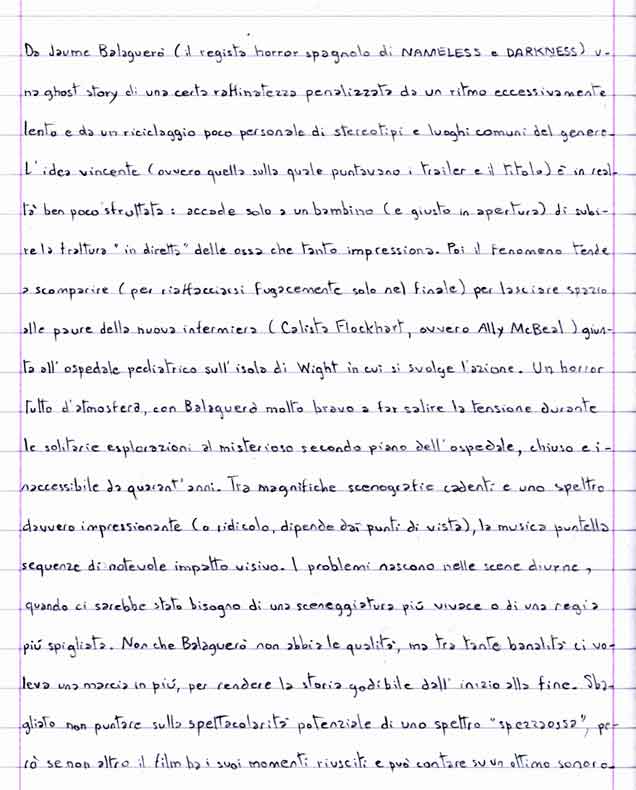 Da Jaume Balaguerò (il regista horror spagnolo di NAMELESS e DARKNESS) u-
na ghost story di una certa raffinatezza penalizzata da un ritmo eccessivamente
lento e da un riciclaggio poco personale di stereotipi e luoghi comuni del genere.
L'idea vincente (ovvero quella sulla quale puntavano i trailer e il titolo) è in real-
tà ben poco sfruttata: accade solo a un bambino (e giusto in apertura) di subi-
re la frattura "in diretta" delle ossa che tanto impressiona. Poi il fenomeno tende
a scomparire (per riaffacciarsi fugacemente solo nel finale) per lasciare spazio
alle paure della nuova infermiera (Calista Flockhart, ovvero Ally McBeal) giun-
ta all'ospedale pediatrico sull'isola di Wight in cui si svolge l'azione. Un horror
tutto d'atmosfera, con Balaguerò molto bravo a far salire la tensione durante
le solitarie esplorazioni al misterioso secondo piano dell'ospedale, chiuso e i-
naccessibile da quarant'anni. Tra magnifiche scenografie cadenti e uno spettro
davvero impressionante (o ridicolo, dipende dai punti di vista), la musica puntella
sequenze di notevole impatto visivo. I problemi nascono nelle scene diurne,
quando ci sarebbe stato bisogno di una sceneggiatura più vivace o di una regia
più spigliata. Non che Balaguerò non abbia le qualità, ma tra tante banalità ci vo-
leva una marcia in più, per rendere la storia godibile dall'inizio alla fine. Sba-
gliato non puntare sulla spettacolarità potenziale di uno spettro "spezzaossa", pe-
rò se non altro il film ha i suoi momenti riusciti e può contare su un ottimo sonoro.